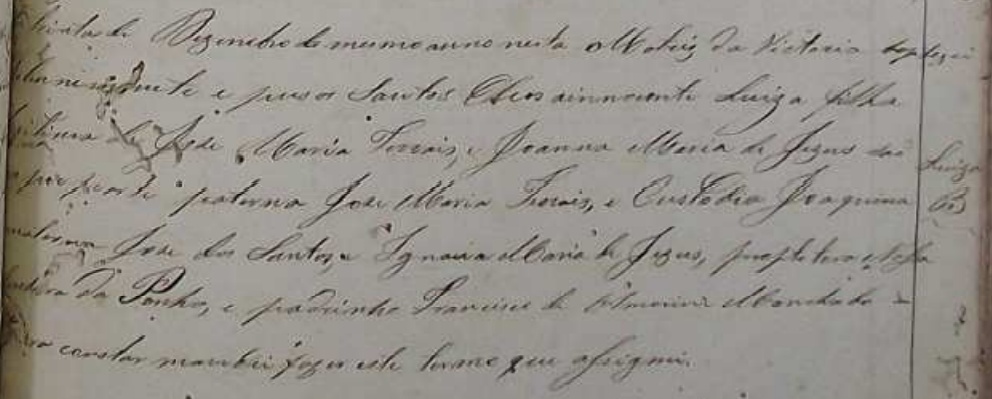 de Dezembro do mesmo anno nesta Matriz da Victoria baptizei
e puz os Santos Oleos a innocente Luiza filha
legitima de José Maria Ferrais, e Joanna Maria de Jezus
por parte paterna José Maria Ferrais, e Custodia Joaquina
materna José dos Santos, e Ignacia Maria de Jezus,
da Penha, e padrinho Francisco de Amorim Machado
constar mandei fazer este termo que assignei.
Luiza